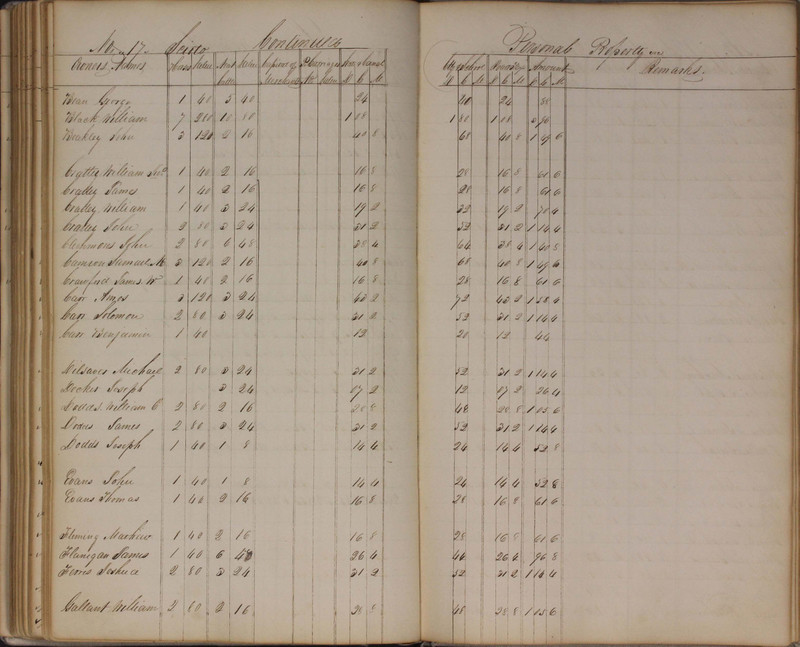 No. 17. Continued Personal Property
Owners Names Horses Value Neat Cattle Value State and Canal County & School Road Tax Amount Remarks.
Bean George 1 40 5 40 24 40 24 88
Black William 7 280 10 80 1 08 1 80 1 08 3 96
John 3 120 2 16 40 8 68 40 8 1 49 6
William 1 40 2 16 16 8 28 16 8 61 6
Cralley James 1 40 2 16 16 8 28 16 8 61 6
Cralley William 1 40 3 24 19 2 32 19 2 70 4
Cralley John 2 80 3 24 31 2 52 31 2 1 14 4
Clemmons John 2 80 6 48 38 4 64 38 4 1 40 8
Cameron Samuel M 3 120 2 16 40 8 68 40 8 1 49 6
Crawford James W 1 40 2 16 16 8 28 16 8 61 6
Carr Amos 3 120 3 24 43 2 72 43 2 1 58 4
Carr Solomon 2 80 3 24 31 2 52 31 2 1 14 4
Carr Benjamin 1 40 12 20 12 44
Michael 2 80 3 24 31 2 52 31 2 1 14 4
Joseph 3 24 07 2 12 07 2 26 4
Dodds William C 2 80 2 16 28 8 48 28 8 1 05 6
Dodds James 2 80 3 24 31 2 52 31 2 1 14 4
Dodds Joseph 1 40 1 8 14 4 24 14 4 52 8
Evans John 1 40 1 8 14 4 24 14 4 52 8
Evans Thomas 1 40 2 16 16 8 28 16 8 61 6
Fleming Mathew 1 40 2 16 16 8 28 16 8 61 6
Flanigan James 1 40 6 48 26 4 44 26 4 96 8
Joshua 2 80 3 24 31 2 52 31 2 1 14 4
Gallant William 2 80 2 16 28 8 48 28 8 1 05 6